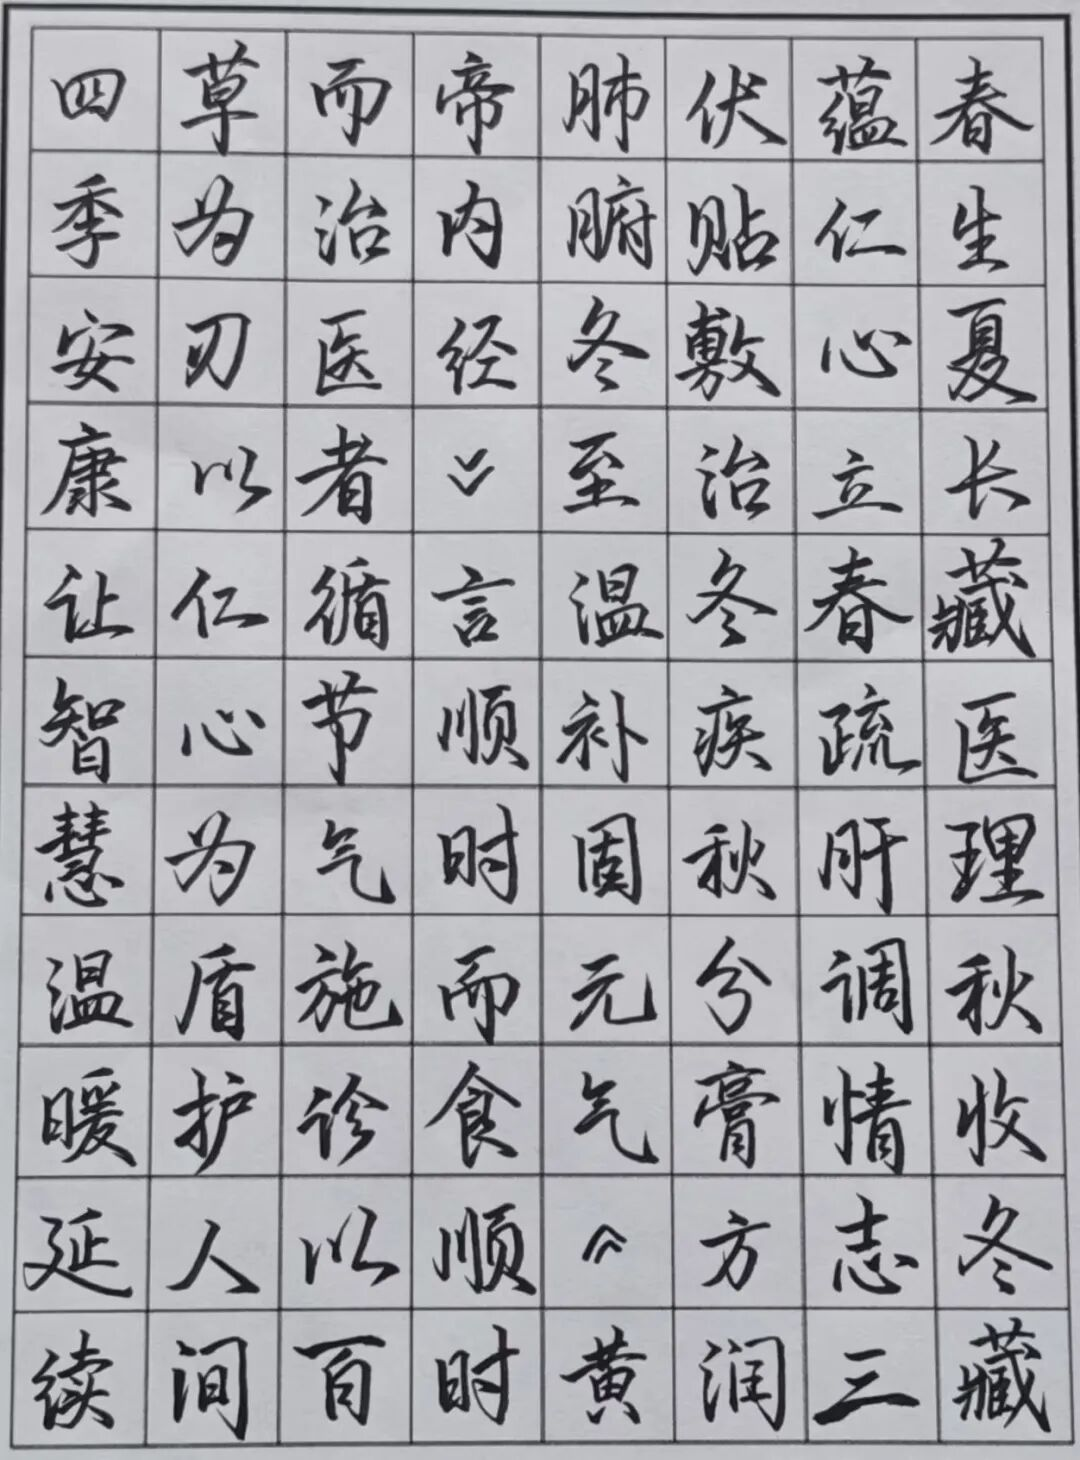 春生夏长藏医理秋收冬藏
蕴仁心立春疏肝调情志三
伏贴敷治冬疾秋分膏方润
肺腑冬至温补固元气《黄
帝内经》言顺时而食顺时
而治医者循节气施诊以百
草为刃以仁心为盾护人间
四季安康让智慧温暖延续